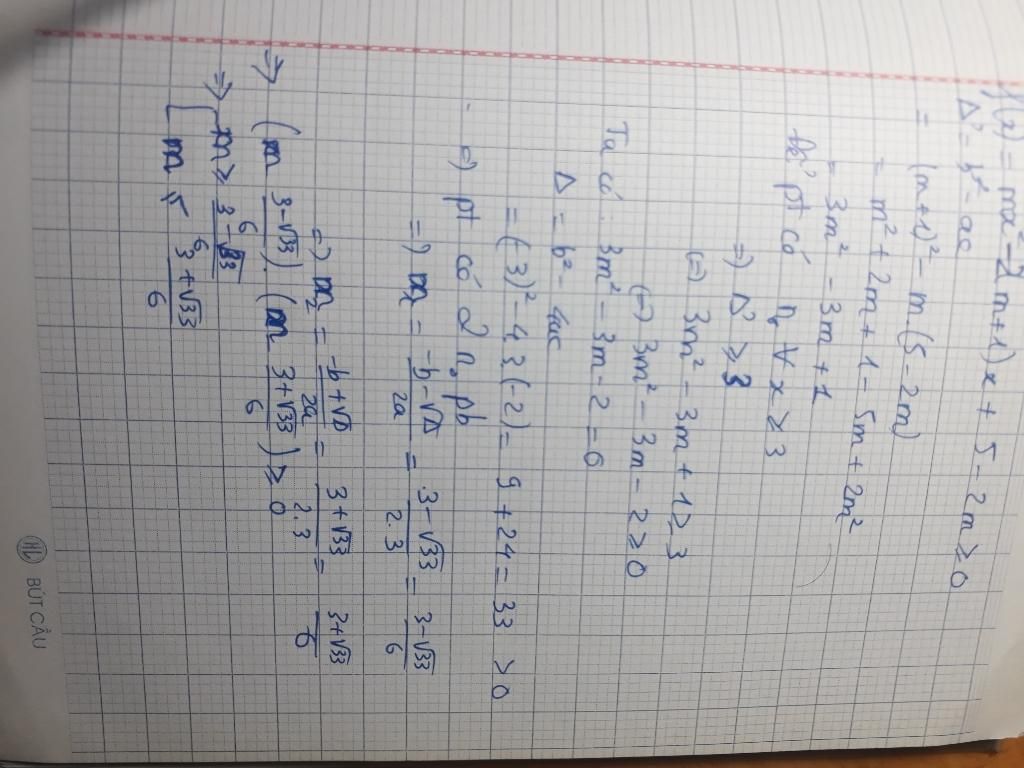 f(x) = mx² - 2(m+1)x + 5 - 2m ≥ 0
Δ' = b'² - ac
= (m+1)² - m(5 - 2m)
= m² + 2m + 1 - 5m + 2m²
= 3m² - 3m + 1
Để pt có n₀ ∀ x ≥ 3
=) Δ' ≥ 3
(=) 3m² - 3m + 1 ≥ 3
(=) 3m² - 3m - 2 ≥ 0
Ta có: 3m² - 3m - 2 = 0
Δ = b² - 4ac
= (-3)² - 4.3(-2) = 9 + 24 = 33 > 0
=) pt có 2 n₀ pb
=) m₁ = (-b - √Δ)/2a = (3 - √33)/2.3 = (3 - √33)/6
=) m₂ = (-b + √Δ)/2a = (3 + √33)/2.3 = (3 + √33)/6
=> (m (3 - √33)/6) . (m (3 + √33)/6) ≥ 0
=> [ m ≥ (3 - √33)/6
m ≤ (3 + √33)/6
BÚT CẦU